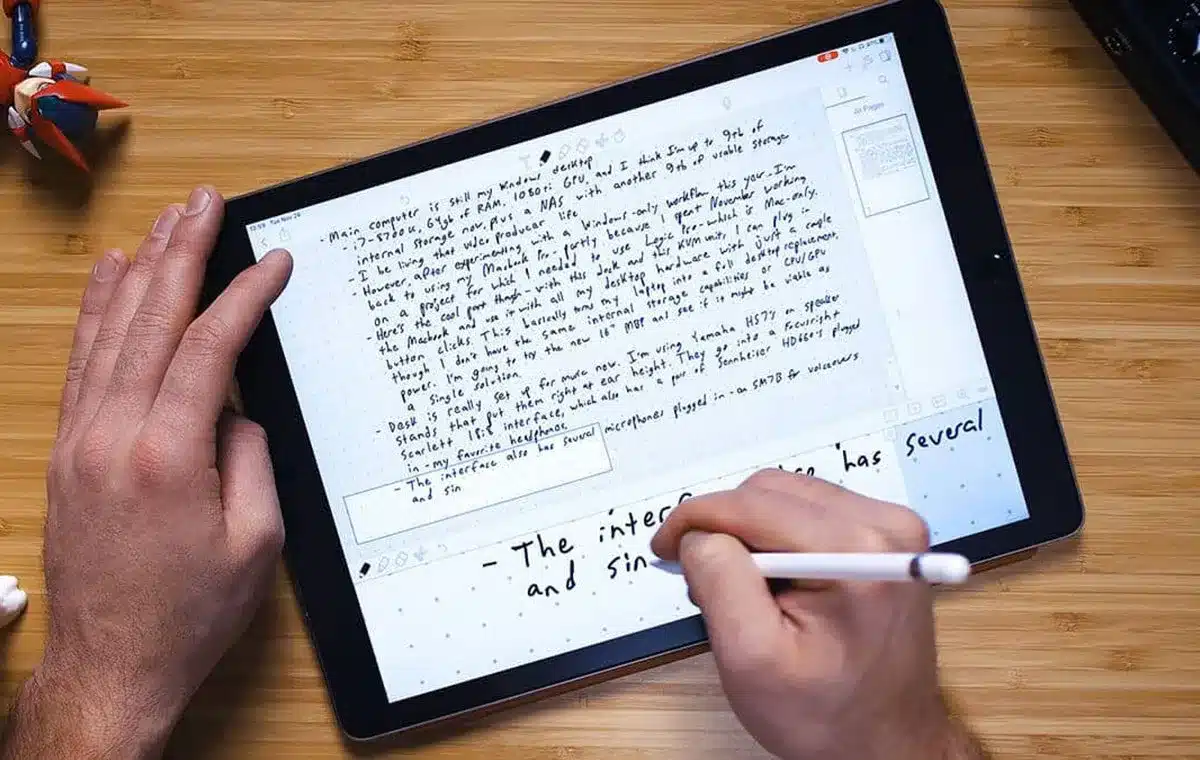 Tue Nov 26
All Pages
- Main computer is still my Windows desktop
- i7-8700K, 64gb of RAM, 1080ti GPU, and I think I'm up to 9tb of
internal storage now, plus a NAS with another 9tb of usable storage
- I be living that video producer life
- However, after experimenting with a Windows-only workflow this year I'm
back to using my Macbook Pro, partly because I spent November working
on a project for which I needed to use Logic Pro - which is Mac-only.
- Here's the cool part though - with this dock and this KVM unit, I can plug in
the Macbook and use it with all my desktop hardware with just a couple
button clicks. This basically turns my laptop into a full desktop replacement,
though I don't have the same internal storage capabilities or CPU/GPU
power. I'm going to try the new 16" MBP and see if it might be viable as
a single solution.
- Desk is really set up for music now. I'm using Yamaha HS7's on speaker
stands that put them right at ear height. They go into a Focusright
Scarlett 18i8 interface, which also has a pair of Sennheiser HD600's plugged
in - my favorite headphones.
- The interface also has several microphones plugged in - an SM7B for voiceovers
and sin
- The interf has several
and sin